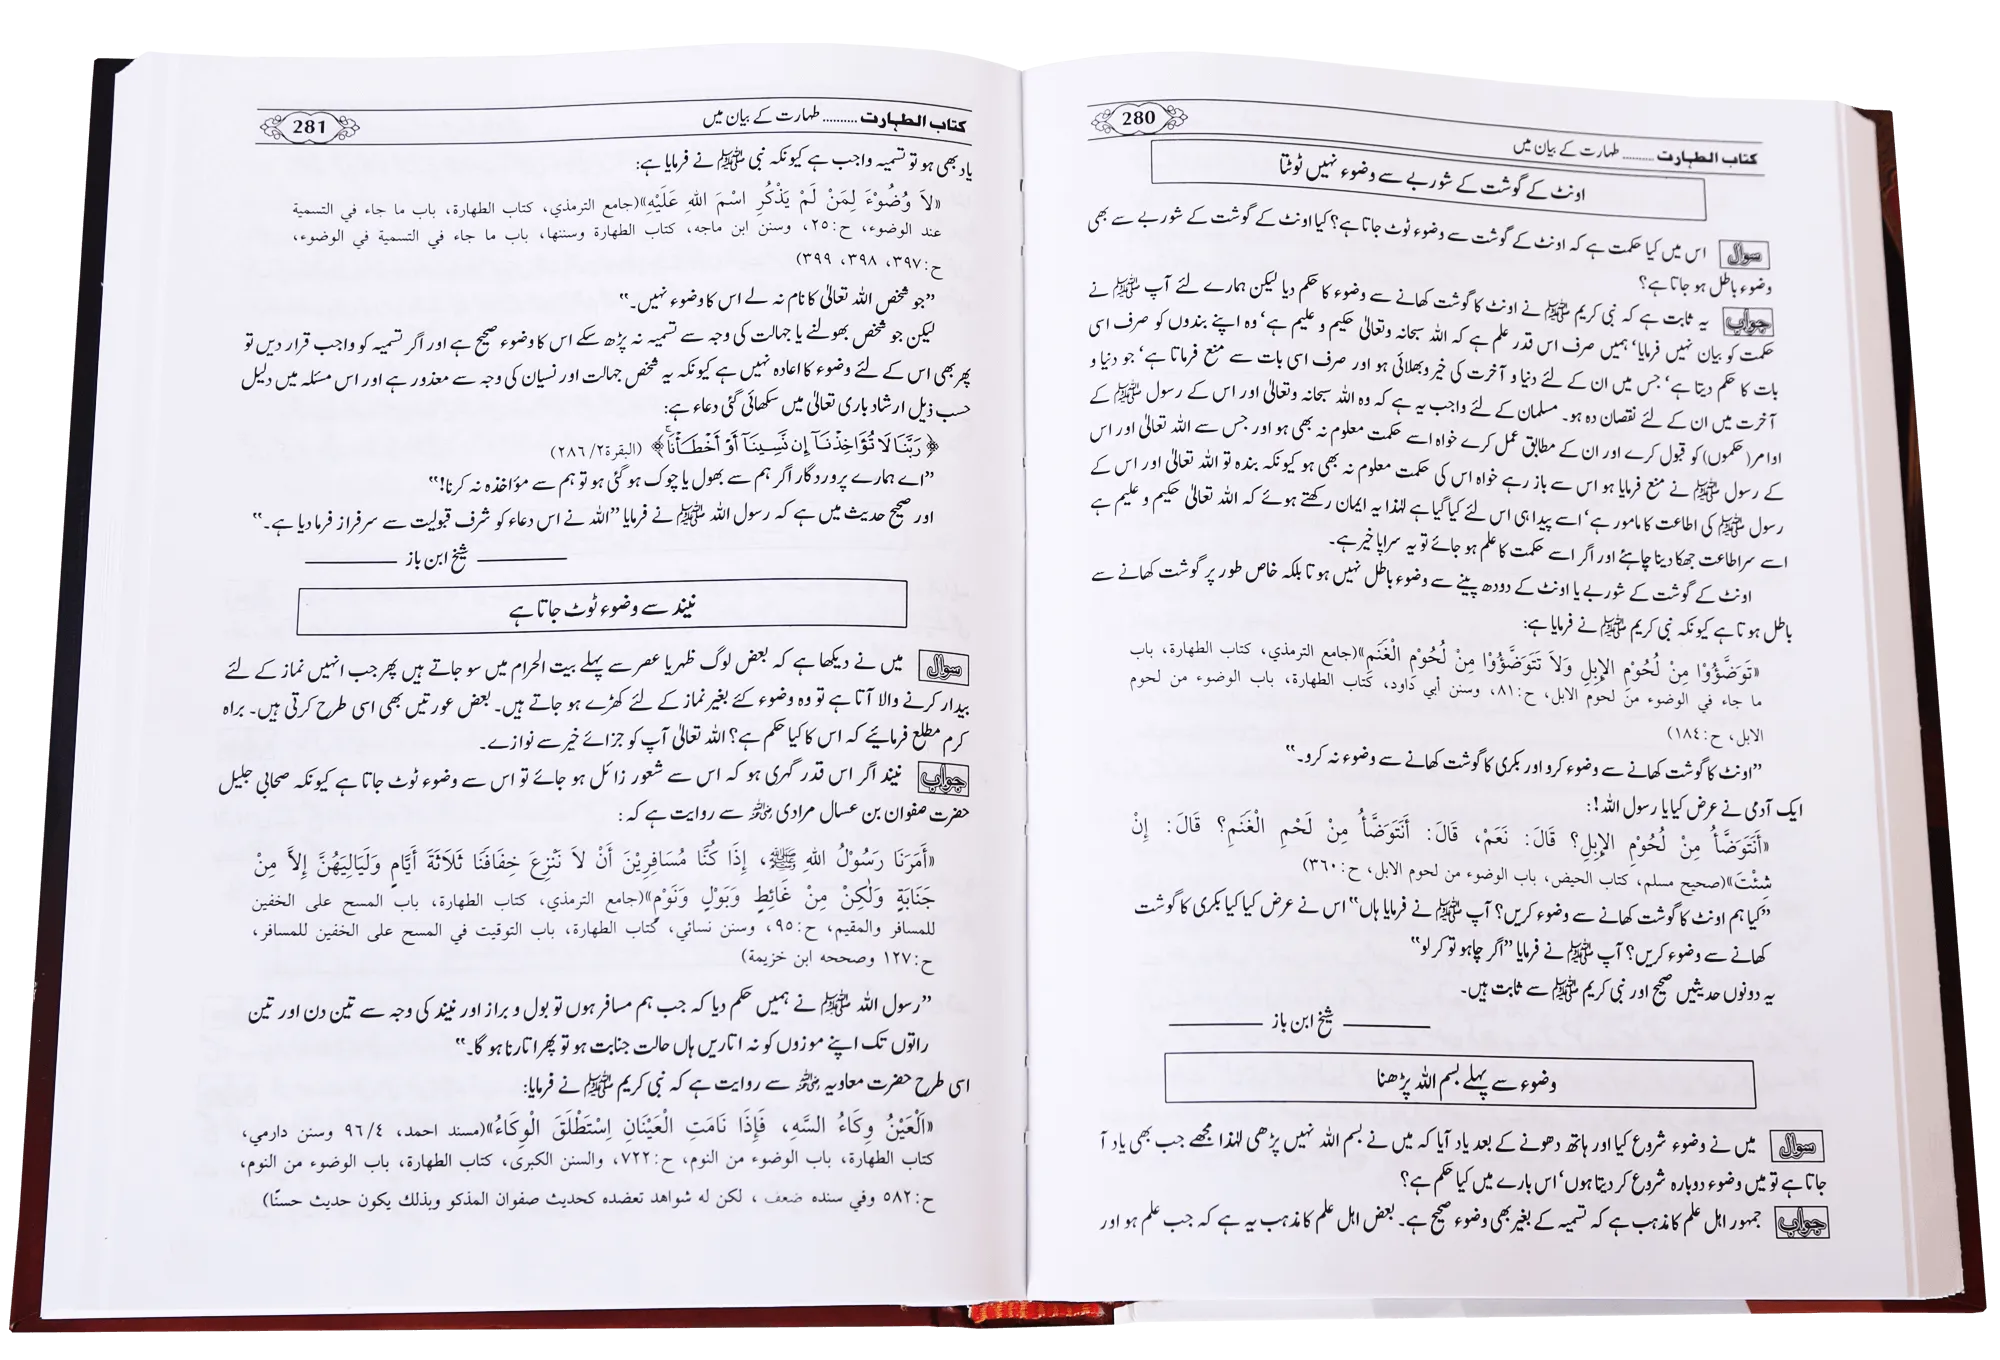 280
کتاب الطہارت .......... طہارت کے بیان میں
اونٹ کے گوشت کے شوربے سے وضوء نہیں ٹوٹتا
سوال اس میں کیا حکمت ہے کہ اونٹ کے گوشت سے وضوء ٹوٹ جاتا ہے؟ کیا اونٹ کے گوشت کے شوربے سے بھی
وضوء باطل ہو جاتا ہے؟
جواب یہ ثابت ہے کہ نبی کریم ﷺ نے اونٹ کا گوشت کھانے سے وضوء کا حکم دیا لیکن ہمارے لئے آپ ﷺ نے
حکمت کو بیان نہیں فرمایا‘ ہمیں صرف اس قدر علم ہے کہ اللہ سبحانہ وتعالیٰ حکیم و علیم ہے‘ وہ اپنے بندوں کو صرف اسی
بات کا حکم دیتا ہے‘ جس میں ان کے لئے دنیا و آخرت کی خیر وبھلائی ہو اور صرف اسی بات سے منع فرماتا ہے‘ جو دنیا و
آخرت میں ان کے لئے نقصان دہ ہو۔ مسلمان کے لئے واجب یہ ہے کہ وہ اللہ سبحانہ وتعالیٰ اور اس کے رسول ﷺ کے
اوامر (حکموں) کو قبول کرے اور ان کے مطابق عمل کرے خواہ اسے حکمت معلوم نہ بھی ہو اور جس سے اللہ تعالیٰ اور اس
کے رسول ﷺ نے منع فرمایا ہو اس سے باز رہے خواہ اس کی حکمت معلوم نہ بھی ہو کیونکہ بندہ تو اللہ تعالیٰ اور اس کے
رسول ﷺ کی اطاعت کا مامور ہے‘ اسے پیدا ہی اس لئے کیا گیا ہے لہٰذا یہ ایمان رکھتے ہوئے کہ اللہ تعالیٰ حکیم و علیم ہے
اسے سر اطاعت جھکا دینا چاہئے اور اگر اسے حکمت کا علم ہو جائے تو یہ سراپا خیر ہے۔
اونٹ کے گوشت کے شوربے یا اونٹ کے دودھ پینے سے وضوء باطل نہیں ہوتا بلکہ خاص طور پر گوشت کھانے سے
باطل ہوتا ہے کیونکہ نبی کریم ﷺ نے فرمایا ہے:
«تَوَضَّؤُوْا مِنْ لُحُوْمِ الإِبِلِ وَلاَ تَتَوَضَّؤُوْا مِنْ لُحُوْمِ الْغَنَمِ»(جامع الترمذي، كتاب الطهارة، باب
ما جاء في الوضوء من لحوم الابل، ح:٨١، وسنن أبي داود، كتاب الطهارة، باب الوضوء من لحوم
الابل، ح:١٨٤)
”اونٹ کا گوشت کھانے سے وضوء کرو اور بکری کا گوشت کھانے سے وضوء نہ کرو۔“
ایک آدمی نے عرض کیا یا رسول اللہ!:
«أَنَتَوَضَّأُ مِنْ لُحُوْمِ الإِبِلِ؟ قَالَ: نَعَمْ، قَالَ: أَنَتَوَضَّأُ مِنْ لَحْمِ الْغَنَمِ؟ قَالَ: إِنْ
شِئْتَ»(صحيح مسلم، كتاب الحيض، باب الوضوء من لحوم الابل، ح:٣٦٠)
”کیا ہم اونٹ کا گوشت کھانے سے وضوء کریں؟ آپ ﷺ نے فرمایا ہاں“ اس نے عرض کیا کیا بکری کا گوشت
کھانے سے وضوء کریں؟ آپ ﷺ نے فرمایا ”اگر چاہو تو کر لو“
یہ دونوں حدیثیں صحیح اور نبی کریم ﷺ سے ثابت ہیں۔
شیخ ابن باز
وضوء سے پہلے بسم اللہ پڑھنا
سوال میں نے وضوء شروع کیا اور ہاتھ دھونے کے بعد یاد آیا کہ میں نے بسم اللہ نہیں پڑھی لہٰذا مجھے جب بھی یاد آ
جاتا ہے تو میں وضوء دوبارہ شروع کر دیتا ہوں‘ اس بارے میں کیا حکم ہے؟
جواب جمہور اہل علم کا مذہب ہے کہ تسمیہ کے بغیر بھی وضوء صحیح ہے۔ بعض اہل علم کا مذہب یہ ہے کہ جب علم ہو اور
281
کتاب الطہارت .......... طہارت کے بیان میں
یاد بھی ہو تو تسمیہ واجب ہے کیونکہ نبی ﷺ نے فرمایا ہے:
«لاَ وُضُوْءَ لِمَنْ لَمْ يَذْكُرِ اسْمَ اللهِ عَلَيْهِ»(جامع الترمذي، كتاب الطهارة، باب ما جاء في التسمية
عند الوضوء، ح:٢٥، وسنن ابن ماجه، كتاب الطهارة وسننها، باب ما جاء في التسمية في الوضوء،
ح:٣٩٧، ٣٩٨، ٣٩٩)
”جو شخص اللہ تعالیٰ کا نام نہ لے اس کا وضوء نہیں۔“
لیکن جو شخص بھولنے یا جہالت کی وجہ سے تسمیہ نہ پڑھ سکے اس کا وضوء صحیح ہے اور اگر تسمیہ کو واجب قرار دیں تو
پھر بھی اس کے لئے وضوء کا اعادہ نہیں ہے کیونکہ یہ شخص جہالت اور نسیان کی وجہ سے معذور ہے اور اس مسئلہ میں دلیل
حسب ذیل ارشاد باری تعالیٰ میں سکھائی گئی دعاء ہے:
﴿رَبَّنَا لَا تُؤَاخِذْنَآ إِن نَّسِينَآ أَوْ أَخْطَأْنَا﴾ (البقرة٢/٢٨٦)
”اے ہمارے پروردگار اگر ہم سے بھول یا چوک ہو گئی ہو تو ہم سے مؤاخذہ نہ کرنا!“
اور صحیح حدیث میں ہے کہ رسول اللہ ﷺ نے فرمایا ”اللہ نے اس دعاء کو شرف قبولیت سے سرفراز فرما دیا ہے۔“
شیخ ابن باز
نیند سے وضوء ٹوٹ جاتا ہے
سوال میں نے دیکھا ہے کہ بعض لوگ ظہر یا عصر سے پہلے بیت الحرام میں سو جاتے ہیں پھر جب انہیں نماز کے لئے
بیدار کرنے والا آتا ہے تو وہ وضوء کئے بغیر نماز کے لئے کھڑے ہو جاتے ہیں۔ بعض عورتیں بھی اسی طرح کرتی ہیں۔ براہ
کرم مطلع فرمائیے کہ اس کا کیا حکم ہے؟ اللہ تعالیٰ آپ کو جزائے خیر سے نوازے۔
جواب نیند اگر اس قدر گہری ہو کہ اس سے شعور زائل ہو جائے تو اس سے وضوء ٹوٹ جاتا ہے کیونکہ صحابی جلیل
حضرت صفوان بن عسال مرادی رضی اللہ عنہ سے روایت ہے کہ:
«أَمَرَنَا رَسُوْلُ اللهِ ﷺ، إِذَا كُنَّا مُسَافِرِيْنَ أَنْ لاَ نَنْزِعَ خِفَافَنَا ثَلاَثَةَ أَيَّامٍ وَلَيَالِيَهُنَّ إِلاَّ مِنْ
جَنَابَةٍ وَلٰكِنْ مِنْ غَائِطٍ وَبَوْلٍ وَنَوْمٍ»(جامع الترمذي، كتاب الطهارة، باب المسح على الخفين
للمسافر والمقيم، ح:٩٥، وسنن نسائي، كتاب الطهارة، باب التوقيت في المسح على الخفين للمسافر،
ح:١٢٧ وصححه ابن خزيمة)
”رسول اللہ ﷺ نے ہمیں حکم دیا کہ جب ہم مسافر ہوں تو بول و براز اور نیند کی وجہ سے تین دن اور تین
راتوں تک اپنے موزوں کو نہ اتاریں ہاں حالت جنابت ہو تو پھر اتارنا ہو گا۔“
اسی طرح حضرت معاویہ رضی اللہ عنہ سے روایت ہے کہ نبی کریم ﷺ نے فرمایا:
«اَلْعَيْنُ وِكَاءُ السَّهِ، فَإِذَا نَامَتِ الْعَيْنَانِ اِسْتَطْلَقَ الْوِكَاءُ»(مسند احمد، ٩٦/٤ وسنن دارمي،
كتاب الطهارة، باب الوضوء من النوم، ح:٧٢٢، والسنن الكبرى، كتاب الطهارة، باب الوضوء من النوم،
ح:٥٨٢ وفي سنده ضعف ، لكن له شواهد تعضده كحديث صفوان المذكو وبذلك يكون حديث حسنًا)